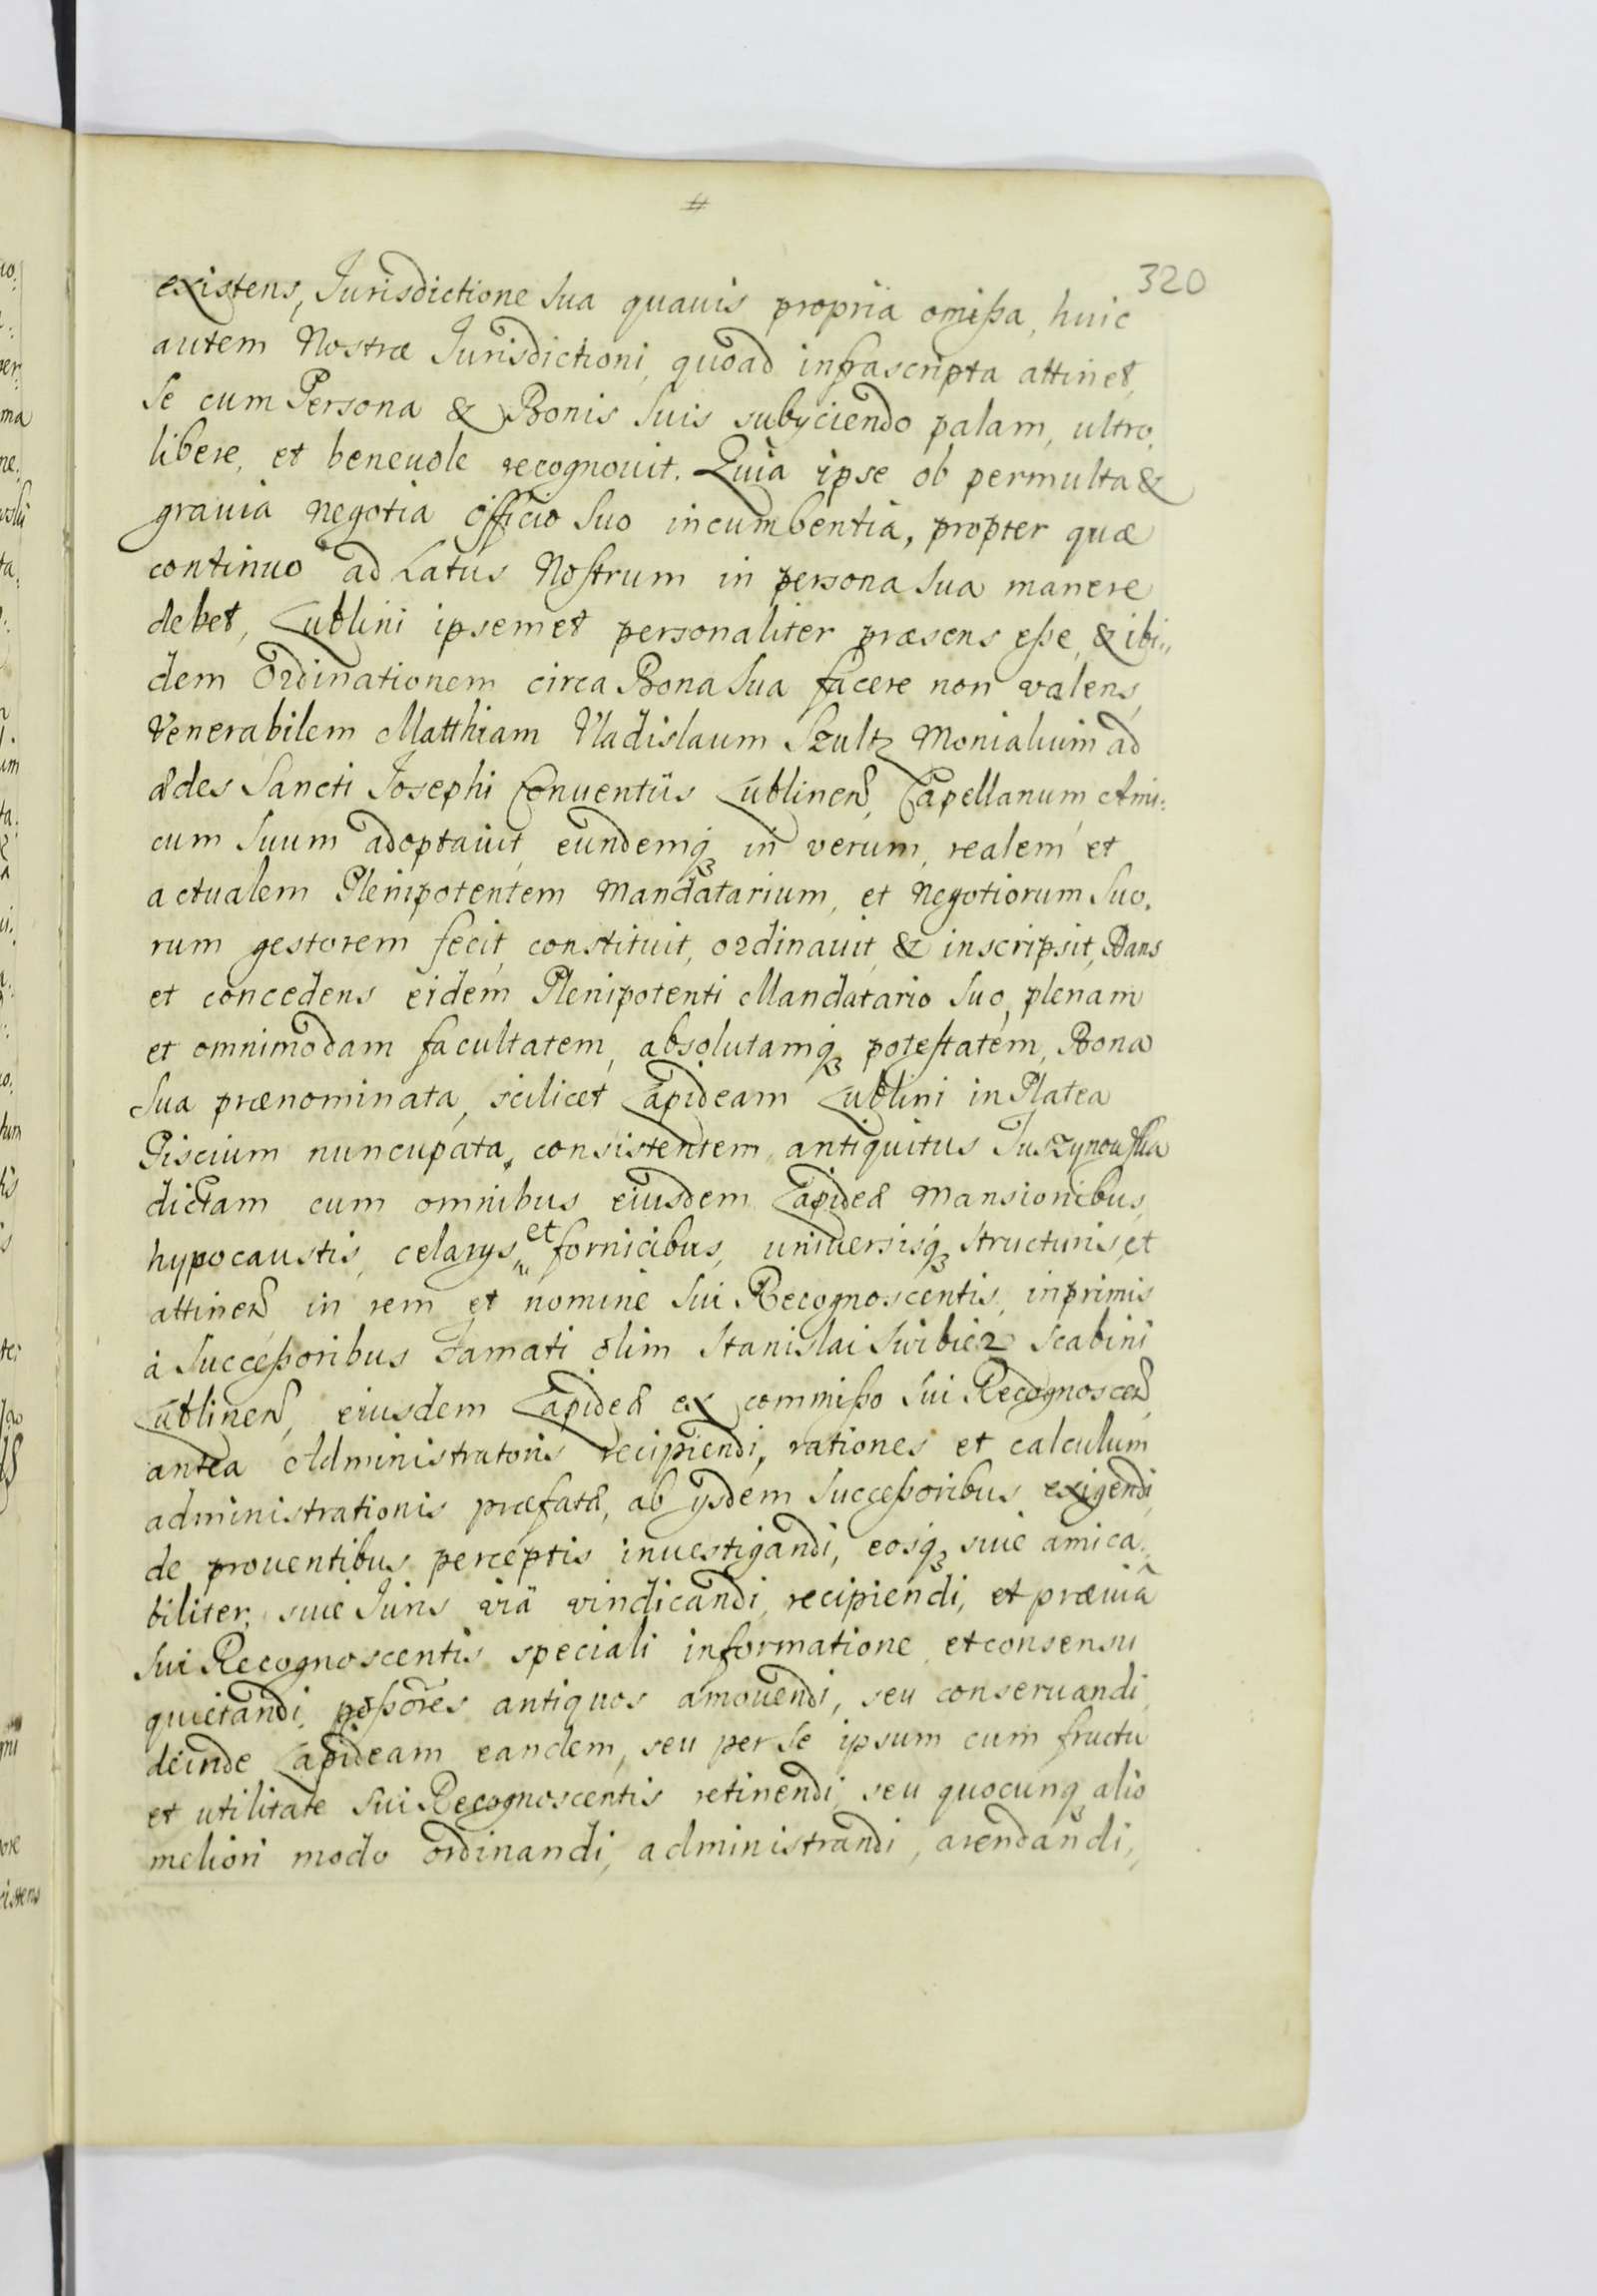 #
320
existens, Jurisdictione sua quavis propriâ omißa, huic
autem Nostræ Jurisdictioni, quoad infrascripta attinet,
se cum Persona & Bonis suis subyciendo palam, ultro,
libere, et beneuole recognouit. Quia ipse ob permulta &
grauia negotia officio suo incumbentia, propter quæ
continuo ad Latus Nostrum in persona sua manere
debet, Lublini ipsemet personaliter præsens eße, & ibi„
dem Ordinationem circa Bona sua facere non valens,
Venerabilem Matthiam Vladislaum Szultz Monialium ad
ædes Sancti Josephi Conuentûs Lublinen, Capellanum, Ami:
cum suum adoptauit, eundemq3 in verum, realem et
actualem Plenipotentem Mandatarium, et Negotiorum suo.
rum gestorem fecit, constituit, ordinauit & inscripsit, Dans
et concedens eidem Plenipotenti Mandatario suo, plenam
et omnimodam facultatem, absolutamq3 potestatem, Bona
sua prænominata, scilicet Lapideam Lublini in Platea
Piscium nuncupata, consistentem antiquitus
dictam cum omnibus eiusdem Lapideæ Mansionibus,
hypocaustis, celarys, et fornicibus, universisq3 structuris, et
attinen in rem et nomine sui Recognoscentis, inprimis
à Succeßoribus Famati olim Stanislai Swibicz Scabini
Lublinen, eiusdem Lapideæ ex commißo sui Recognoscen,
antea Administratoris recipiendi, rationes et calculum
administrationis præfatæ, ab ysdem Succeßoribus exigendi,
de prouentibus perceptis inuestigandi, eosq3 siue amica„
biliter, siue Juris viâ vindicandi, recipiendi, et præuiâ
sui Recognoscentis speciali informatione et consensu
quietandi, poßores antiquos amouendi, seu conseruandi,
deinde Lapideam eandem, seu per se ipsum cum fructu
et utilitate sui Recognoscentis retinendi, seu quocunq3 alio
meliori modo ordinandi, administrandi, arendandi,